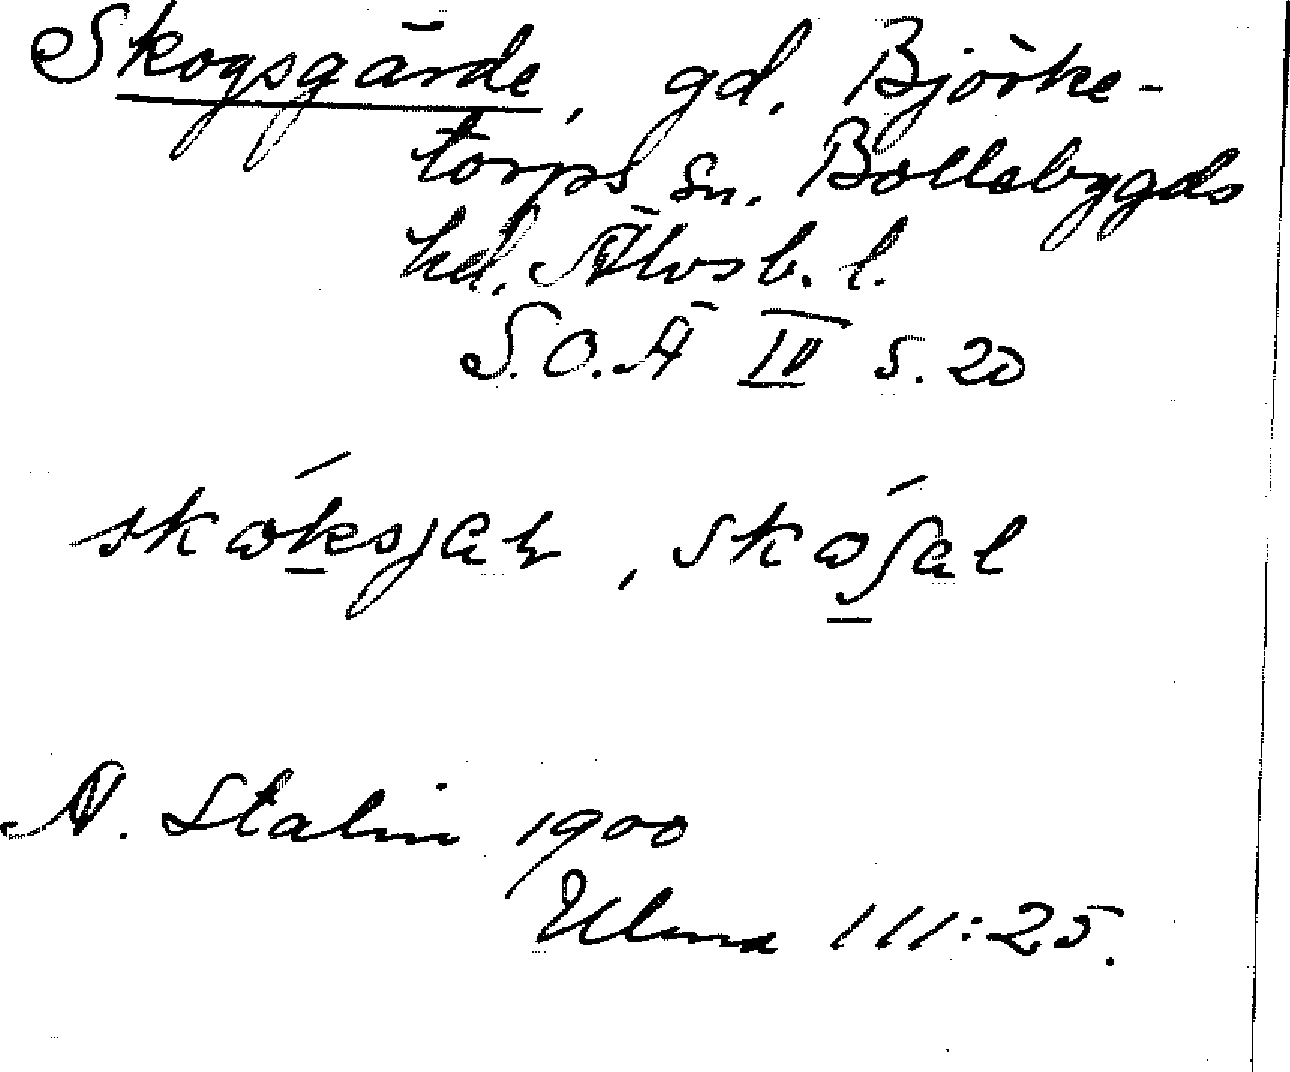 Skogsgärde, gd. Björke-
torps sn. Bollebygds
hd. Älvsb. l.
S.O.Ä IV s. 20
A. Stalin 1900
Ulma 111:25.